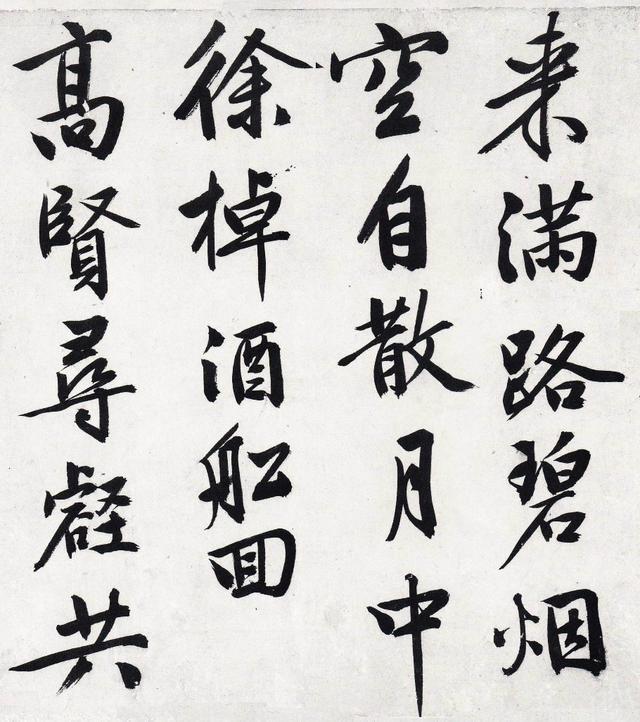 来满路碧烟
空自散月中
徐棹酒舩回
高賢尋壑共